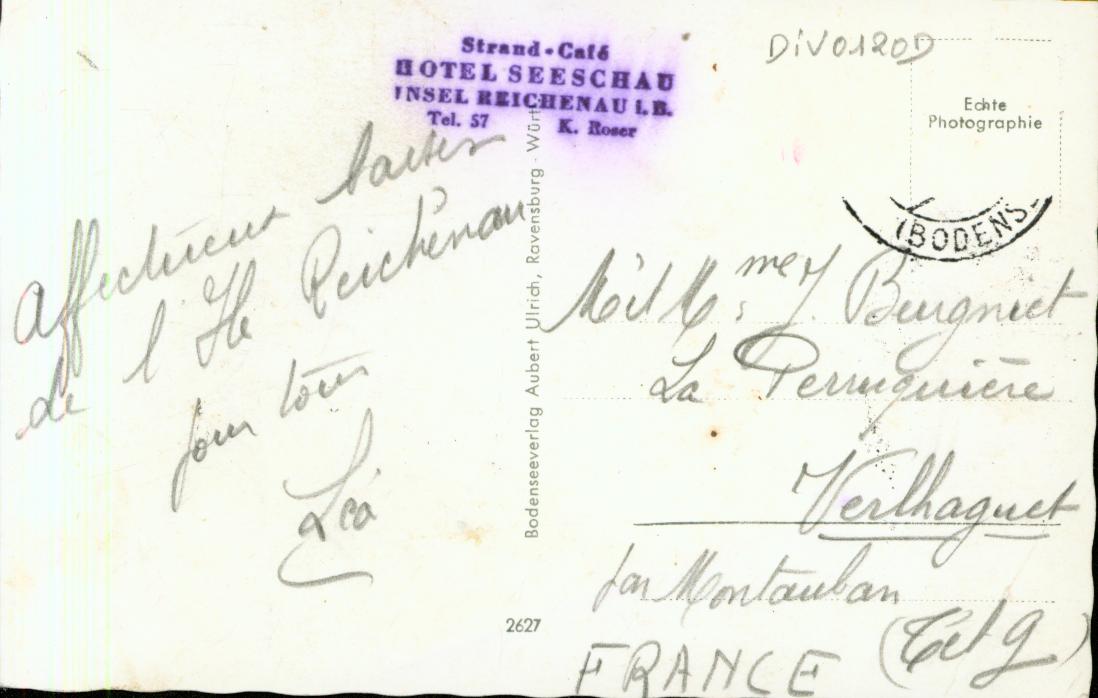 Strand-Café
HOTEL SEESCHAU
INSEL REICHENAU i. B.
Tel. 57 K. Roser
DIV0120D
Echte
Photographie
(BODENS
Affectueux baisers
de l'Ile Reichenau
pour tous
Léa
Bodenseeverlag Aubert Ulrich, Ravensburg - Württ
2627
M et Mme J. Beugniet
La Perruquière
Verlhaguet
par Montauban
(T et G)
FRANCE